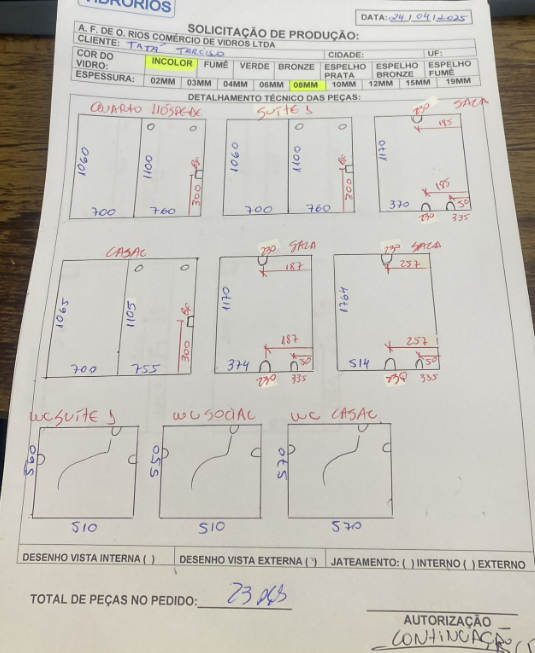 VIDRORIOS
DATA: 24/04/2025
SOLICITAÇÃO DE PRODUÇÃO:
A. F. DE O. RIOS COMÉRCIO DE VIDROS LTDA
CLIENTE: TATÁ TERCISO CIDADE: UF:
COR DO VIDRO: INCOLOR FUMÊ VERDE BRONZE ESPELHO PRATA ESPELHO BRONZE ESPELHO FUMÊ
ESPESSURA: 02MM 03MM 04MM 06MM 08MM 10MM 12MM 15MM 19MM
DETALHAMENTO TÉCNICO DAS PEÇAS:
QUARTO HÓSPEDE
1060 1100 300
700 760
SUÍTE 1
1060 1100 300
700 760
230 SALA
185
1170
185
370 50
230 335
CASAL
1065 1105 300
700 755
230 SALA
187
1170
187
374 50
230 335
230 SALA
257
1764
257
514 50
230 335
WC SUÍTE 1
590
510
WC SOCIAL
550
510
WC CASAL
570
570
DESENHO VISTA INTERNA ( ) DESENHO VISTA EXTERNA ( ) JATEAMENTO: ( ) INTERNO ( ) EXTERNO
TOTAL DE PEÇAS NO PEDIDO: 23 pçs
AUTORIZAÇÃO
CONTINUAÇÃO